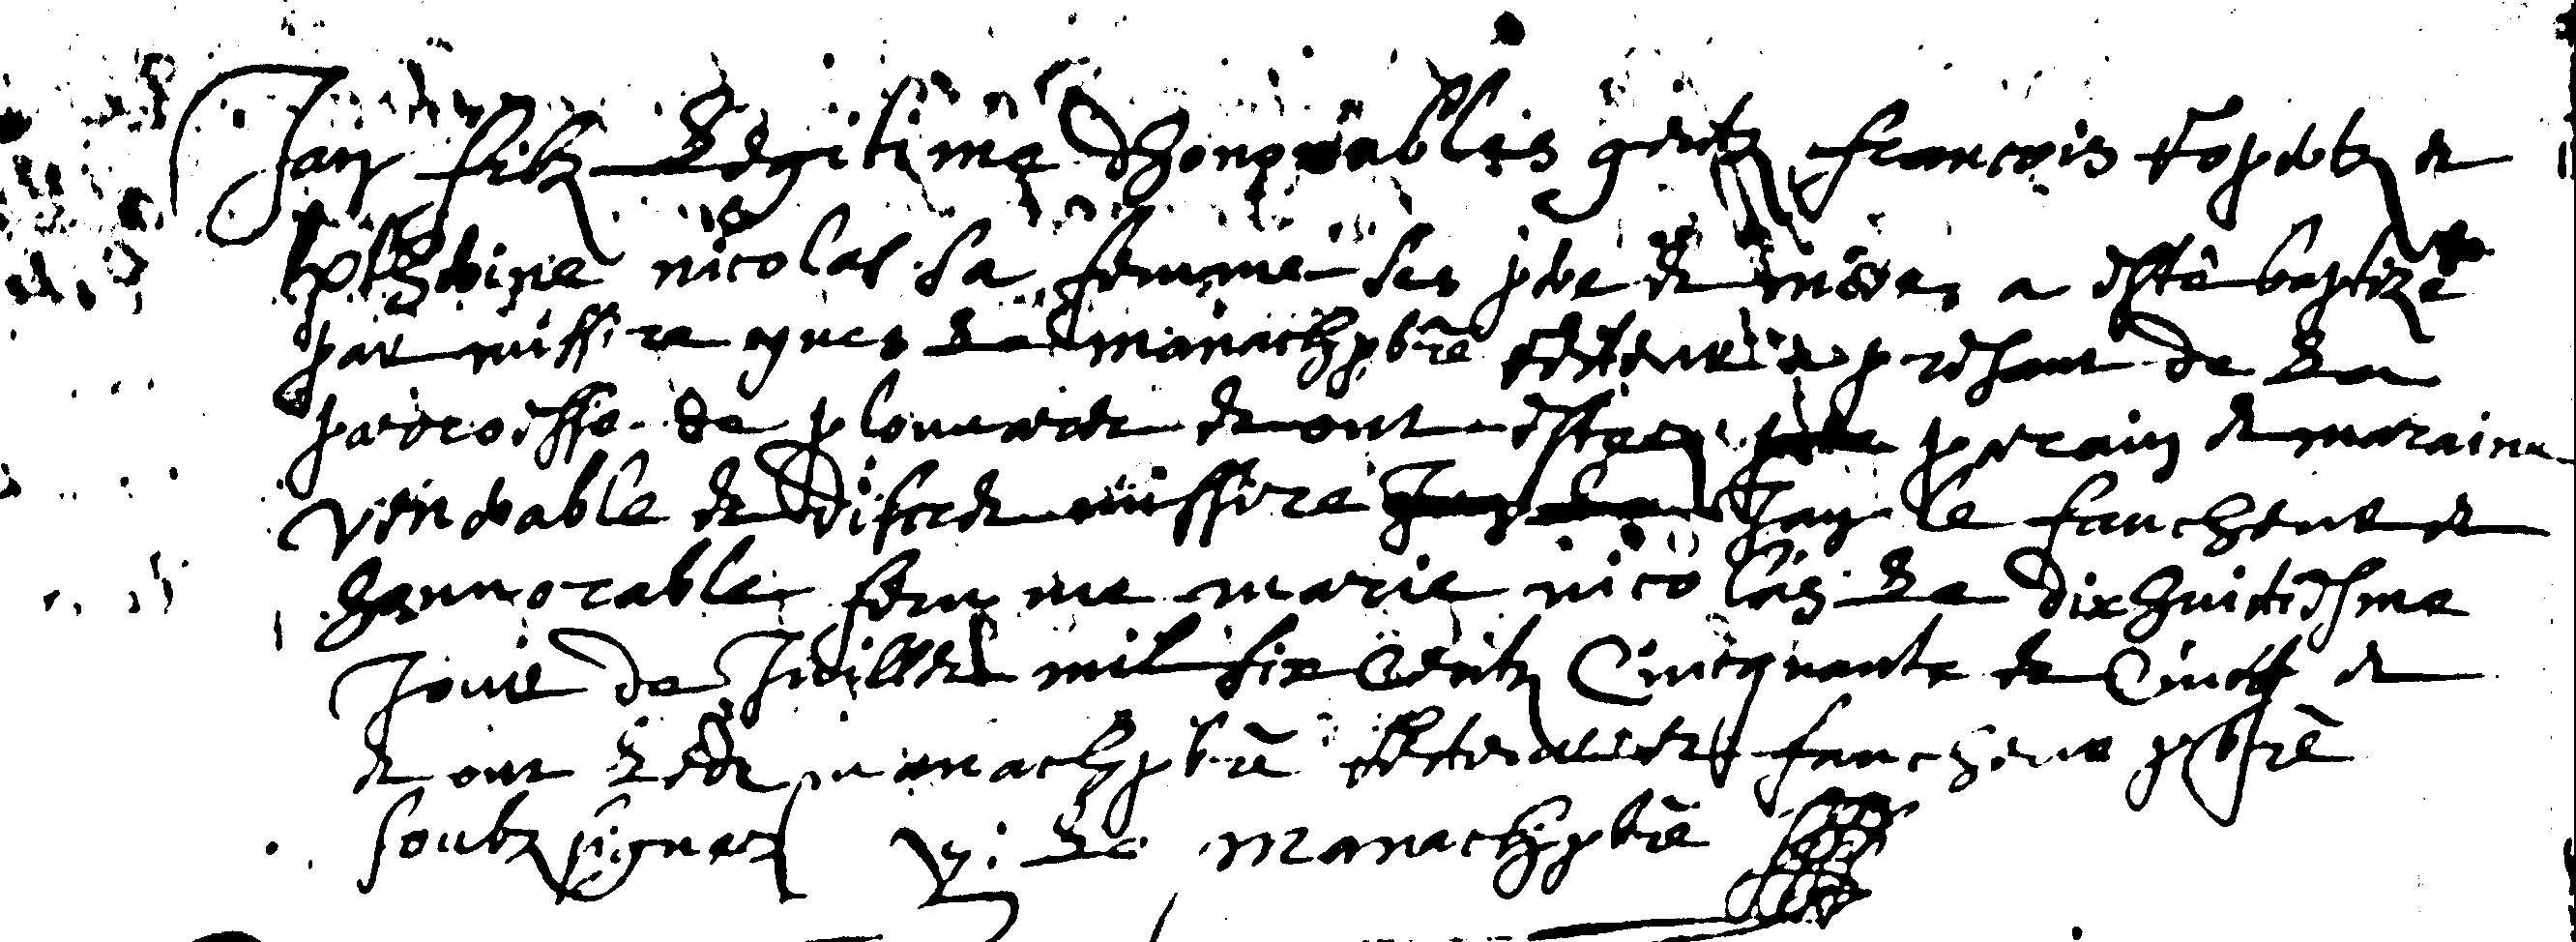 Jan filz Legitime dhonorables gentz francois et
nicolas sa femme ses pere et mere, a esté baptizé
par missire yves Le manach pbre curé a present de La
parroisse de et ont estez parain et maraine
venerable et discret missire Jan Le Jan le faucheur et
honnorable femme marie nicolas Le dixhuictiesme
Jour de Juillet mil six centz Cincquante et Cincq et
et ont Ledt manach pbre et faucheur pbre
soubz signez y: Le manach pbre